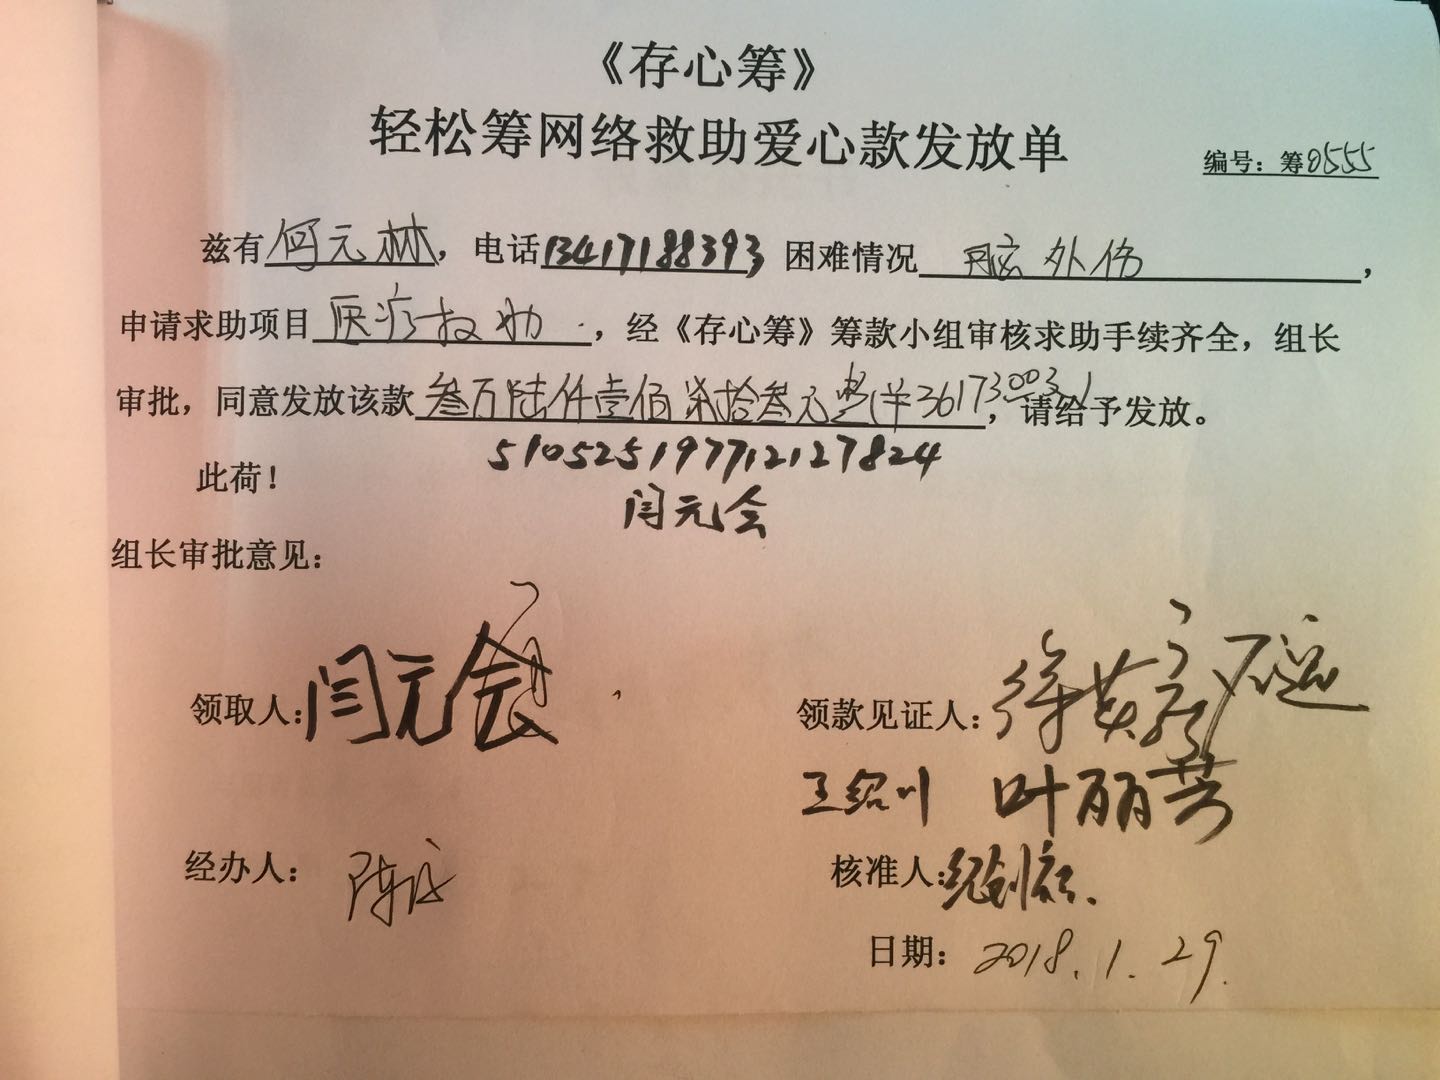 《存心筹》
轻松筹网络救助爱心款发放单
编号：筹0555
兹有何元林，电话13417188393 困难情况 脑外伤，
申请求助项目医疗救助，经《存心筹》筹款小组审核求助手续齐全，组长
审批，同意发放该款叁万陆仟壹佰柒拾叁元整(¥36173.00元)，请给予发放。
510525197712127824
此荷！
闫元会
组长审批意见：
领取人：闫元会 领款见证人：徐英
王绍川 叶丽芳
经办人： 陈 核准人：
日期：2018.1.29.